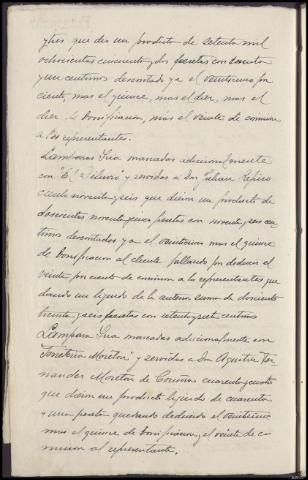 y tres que dio un producto de setenta mil
ochocientas cincuenta y dos pesetas con cuarenta
y un centimos descontado ya el veinticinco por
ciento, mas el quince, mas el diez, mas el
diez de bonificacion, mas el veinte de comision
a los representantes.
Lámparas Iria marcadas adicionalmente
con "El " y servidas a Don
ciento noventa y seis que dieron un producto de
doscientas noventa y pesetas con noventa y seis cen-
timos descontados ya el veinticinco mas el quince
de bonificacion al cliente faltando por deducir el
veinte por ciento de comision a la representantes que
dando un liquido de la anterior suma de doscientas
treinta y seis pesetas con setenta y siete centimos
Lámpara Iria marcadas adicionalmente con
"Ferreteria Moretón" y servidas a Don Agustin Fer-
nandez Moretón de Coruña cuarenta y
que dieron un producto liquido de cuarenta
y una pesetas quedando deducido el veinticinco
mas el quince de bonificacion, y el veinte de co-
mision al representante.